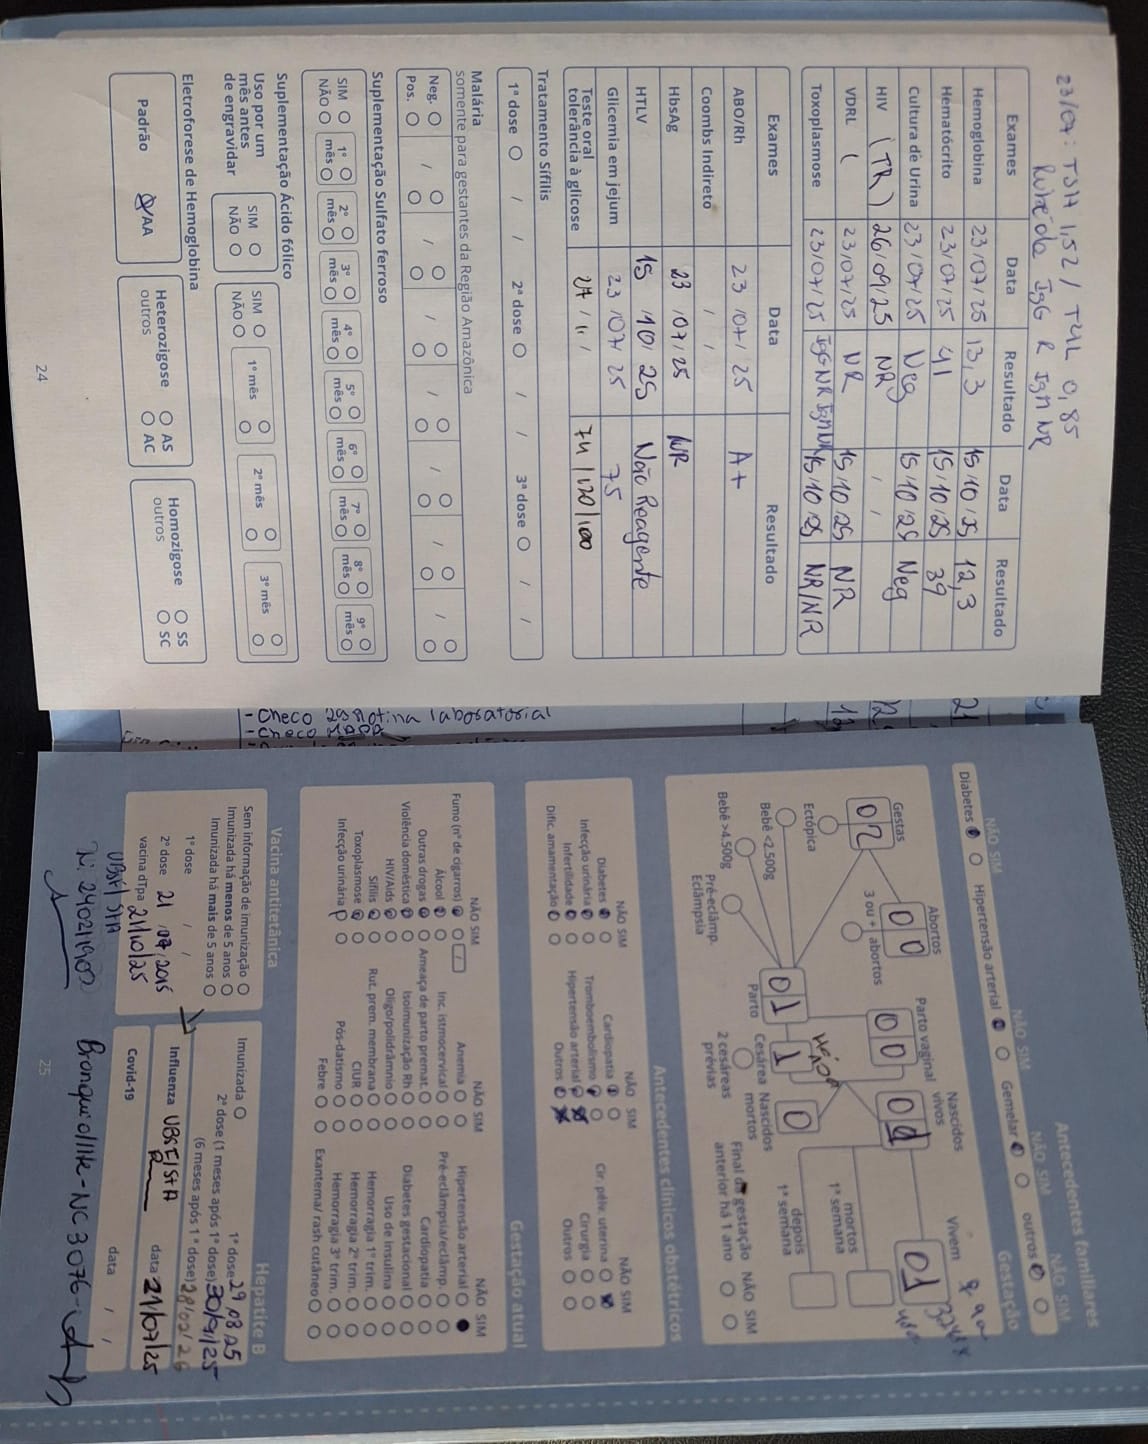 23/07: TSH 1,52 / T4L 0,85
Rubéola IgG R IgM NR
Exames Data Resultado Data Resultado
Hemoglobina 23/07/25 13,3 15/10/25 12,3
Hematócrito 23/07/25 41 15/10/25 39
Cultura de Urina 23/07/25 Neg 15/10/25 Neg
HIV (TR) 26/09/25 NR / /
VDRL ( 23/07/25 NR 15/10/25 NR
Toxoplasmose 23/07/25 IgG NR IgM NR 15/10/25 NR/NR
Exames Data Resultado
ABO/Rh 23/07/25 A+
Coombs Indireto / /
HbsAg 23/07/25 NR
HTLV 15 10/25 Não Reagente
Glicemia em jejum 23/07/25 75
Teste oral
tolerância à glicose 27/11/ 74/120/100
Tratamento Sífilis
1ª dose / / 2ª dose / / 3ª dose / /
Malária
somente para gestantes da Região Amazônica
Neg. / / / / / /
Pos.
Suplementação Sulfato ferroso
SIM 1º 2º 3º 4º 5º 6º 7º 8º 9º
NÃO mês mês mês mês mês mês mês mês mês
Suplementação Ácido fólico
Uso por um
mês antes
de engravidar
SIM SIM 1º mês 2º mês 3º mês
NÃO NÃO
Eletroforese de Hemoglobina
Padrão AA
Heterozigose AS
outros AC
Homozigose SS
outros SC
24
- Checo rotina laboratorial
- Checo
Antecedentes familiares
NÃO SIM NÃO SIM NÃO SIM NÃO SIM
Diabetes Hipertensão arterial Gemelar outros
Gestação
Gestas Abortos Parto vaginal Nascidos vivos Vivem
02 00 00 01 01
Ectópica 3 ou + abortos
mortos
1ª semana
Bebê <2.500g 01 1 0
Parto Cesárea Nascidos mortos depois
1ª semana
Bebê >4.500g
Pré-eclâmp.
Eclâmpsia
2 cesáreas
prévias
Final da gestação NÃO SIM
anterior há 1 ano
Antecedentes clínicos obstétricos
NÃO SIM NÃO SIM NÃO SIM
Diabetes Cardiopatia Cir. pélv. uterina
Infecção urinária Tromboembolismo Cirurgia
Infertilidade Hipertensão arterial Outros
Dific. amamentação Outros
Gestação atual
NÃO SIM NÃO SIM NÃO SIM
Fumo (nº de cigarros) Anemia Hipertensão arterial
Álcool Inc. istmocervical Pré-eclâmpsia/eclâmp
Outras drogas Ameaça de parto premat. Cardiopatia
Violência doméstica Isoimunização Rh Diabetes gestacional
HIV/Aids Oligo/polidrâmnio Uso de insulina
Sífilis Rut. prem. membrana Hemorragia 1º trim.
Toxoplasmose CIUR Hemorragia 2º trim.
Infecção urinária Pós-datismo Hemorragia 3º trim.
Febre Exantema/ rash cutâneo
Vacina antitetânica
Sem informação de imunização
Imunizada há menos de 5 anos
Imunizada há mais de 5 anos
1ª dose / /
2ª dose 21/07/2015
vacina dTpa 21/10/25
UBSF/StA
Hepatite B
Imunizada 1ª dose 29/08/25
2ª dose (1 meses após 1ª dose)
(6 meses após 1ª dose) 28/02/26
Influenza data 21/07/25
Covid-19 data / /
25